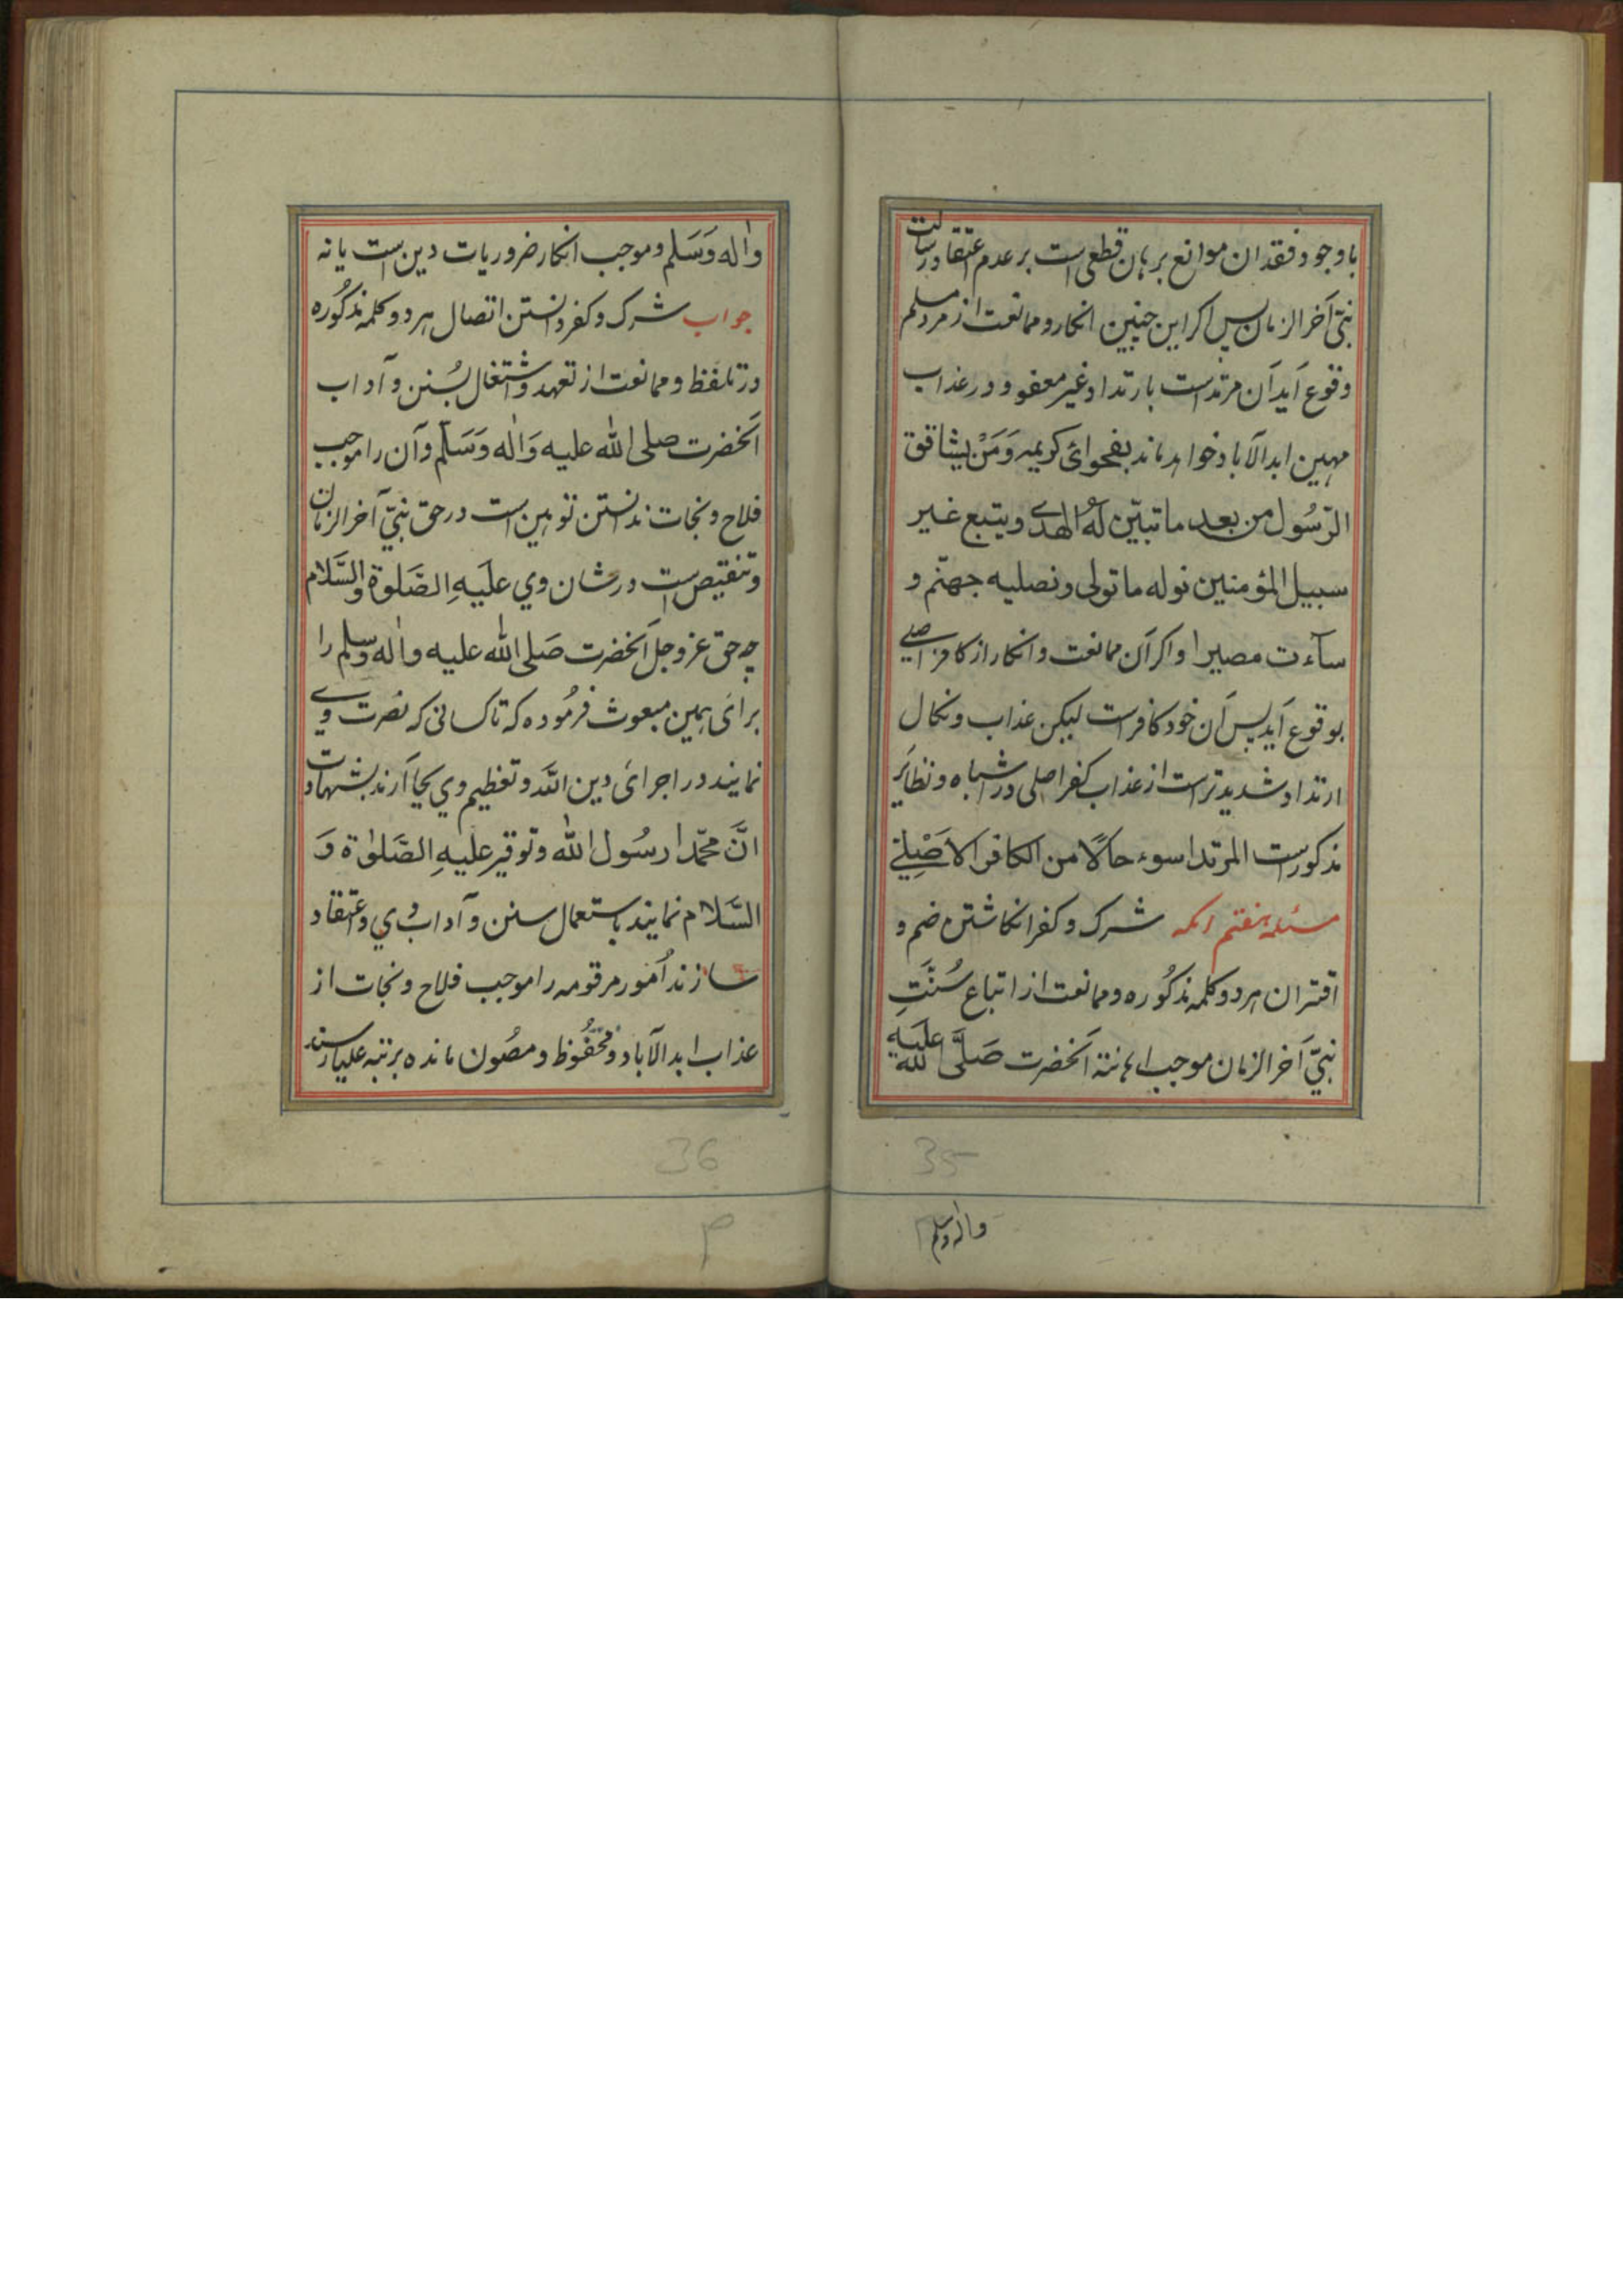 باوجود فقدان موانع برهان قطعی است بر عدم اعتقاد رسالت
نبیّ آخر الزمان پس اکر این چنین انکار و ممانعت از مرد مسلم
وقوع آید آن مرتد است بارتداد غیر معفو و در عذاب
مهین ابد الآباد خواهد ماند بفحوائ کریمه وَمَنْ یشاقق
الرّسُول من بعد ما تبیّن لَهُ الهدی ویتبع غیر
سبیل المؤمنین نوله ما تولی ونصلیه جهنّم و
سآءت مصیرا و اکر آن ممانعت و انکار از کافر اصلے
بوقوع آید پس آن خود کافرست لیکن عذاب و نکال
ارتداد شدیدتر است از عذاب کفر اصلی در اشباه و نظائر
مذکورست المرتد اسوء حالًا من الکافر الاَصْلِیّ
مسئله هفتم آنکه شرک و کفر انکاشتن ضم و
اقتران هر دو کلمه مذکُوره و ممانعت از اتباع سُنَّتِ
نبیّ آخر الزمان موجب اهانتة آنحضرت صَلَّی الله عَلَیهِ
35
واله وسلم
واٰله وَسَلم و موجب انکار ضروریات دین ست یا نه
جواب شرک و کفر دانستن اتصال هر دو کلمه مذکُوره
در تلفظ و ممانعت از تعهد و اشتغال بسُنن و آداب
آنحضرت صلی الله علیه وَاٰله وَسَلَّم و آن را موجب
فلاح و نجات ندانستن توهین ست در حق نبیّ آخر الزمان
و تنقیص ست در شان وی علَیهِ الصَّلوة والسَّلام
چه حق عز و جل آنحضرت صَلی الله علیه واٰله وسلم را
برائ همین مبعوث فرمُوده که تا کسانی که نصرت وے
نمایند در اجرائ دین الله و تعظیم وی بجا آرند بشهادت
انَّ محمّدا رسُول الله و توقیر علیهِ الصَّلوٰة وَ
السَّلام نمایند باستعمال سنن و آداب وی و اعتقاد
سازند اُمور مرقومه را موجب فلاح و نجات از
عذاب ابد الآباد و محفُوظ و مصُون مانده برتبه علیا رسند
36